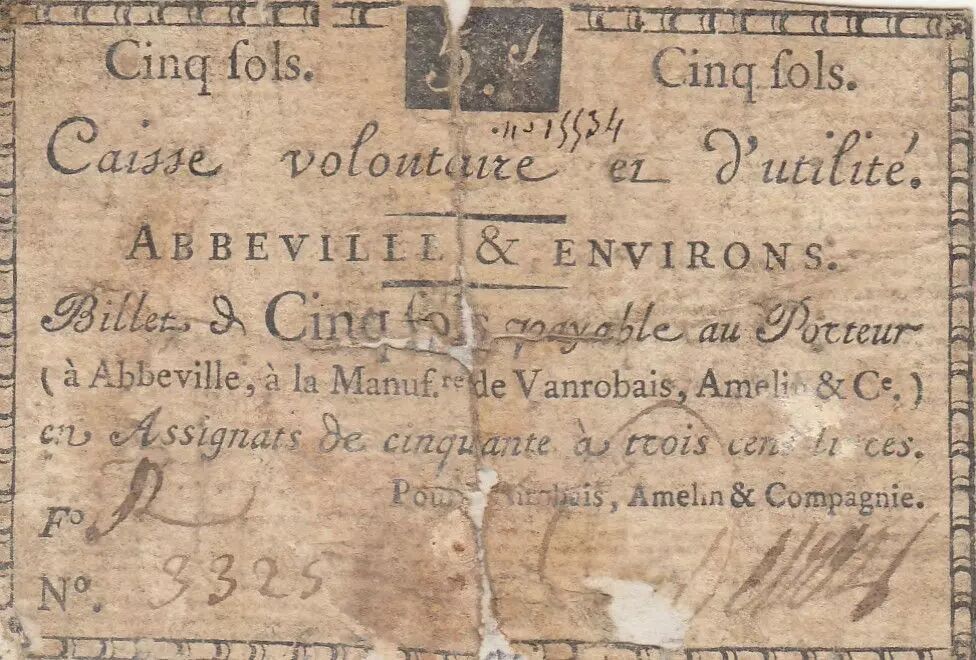 Cinq ſols. 5. ſ Cinq ſols.
.nº 15534
Caisse volontaire et d'utilité.
ABBEVILLE & ENVIRONS.
Billet de Cinq ſols payable au Porteur
(à Abbeville, à la Manuf.re de Vanrobais, Amelin & Ce.)
en Assignats de cinquante à trois cens livres.
Pour Vanrobais, Amelin & Compagnie.
Fº
Nº. 3325